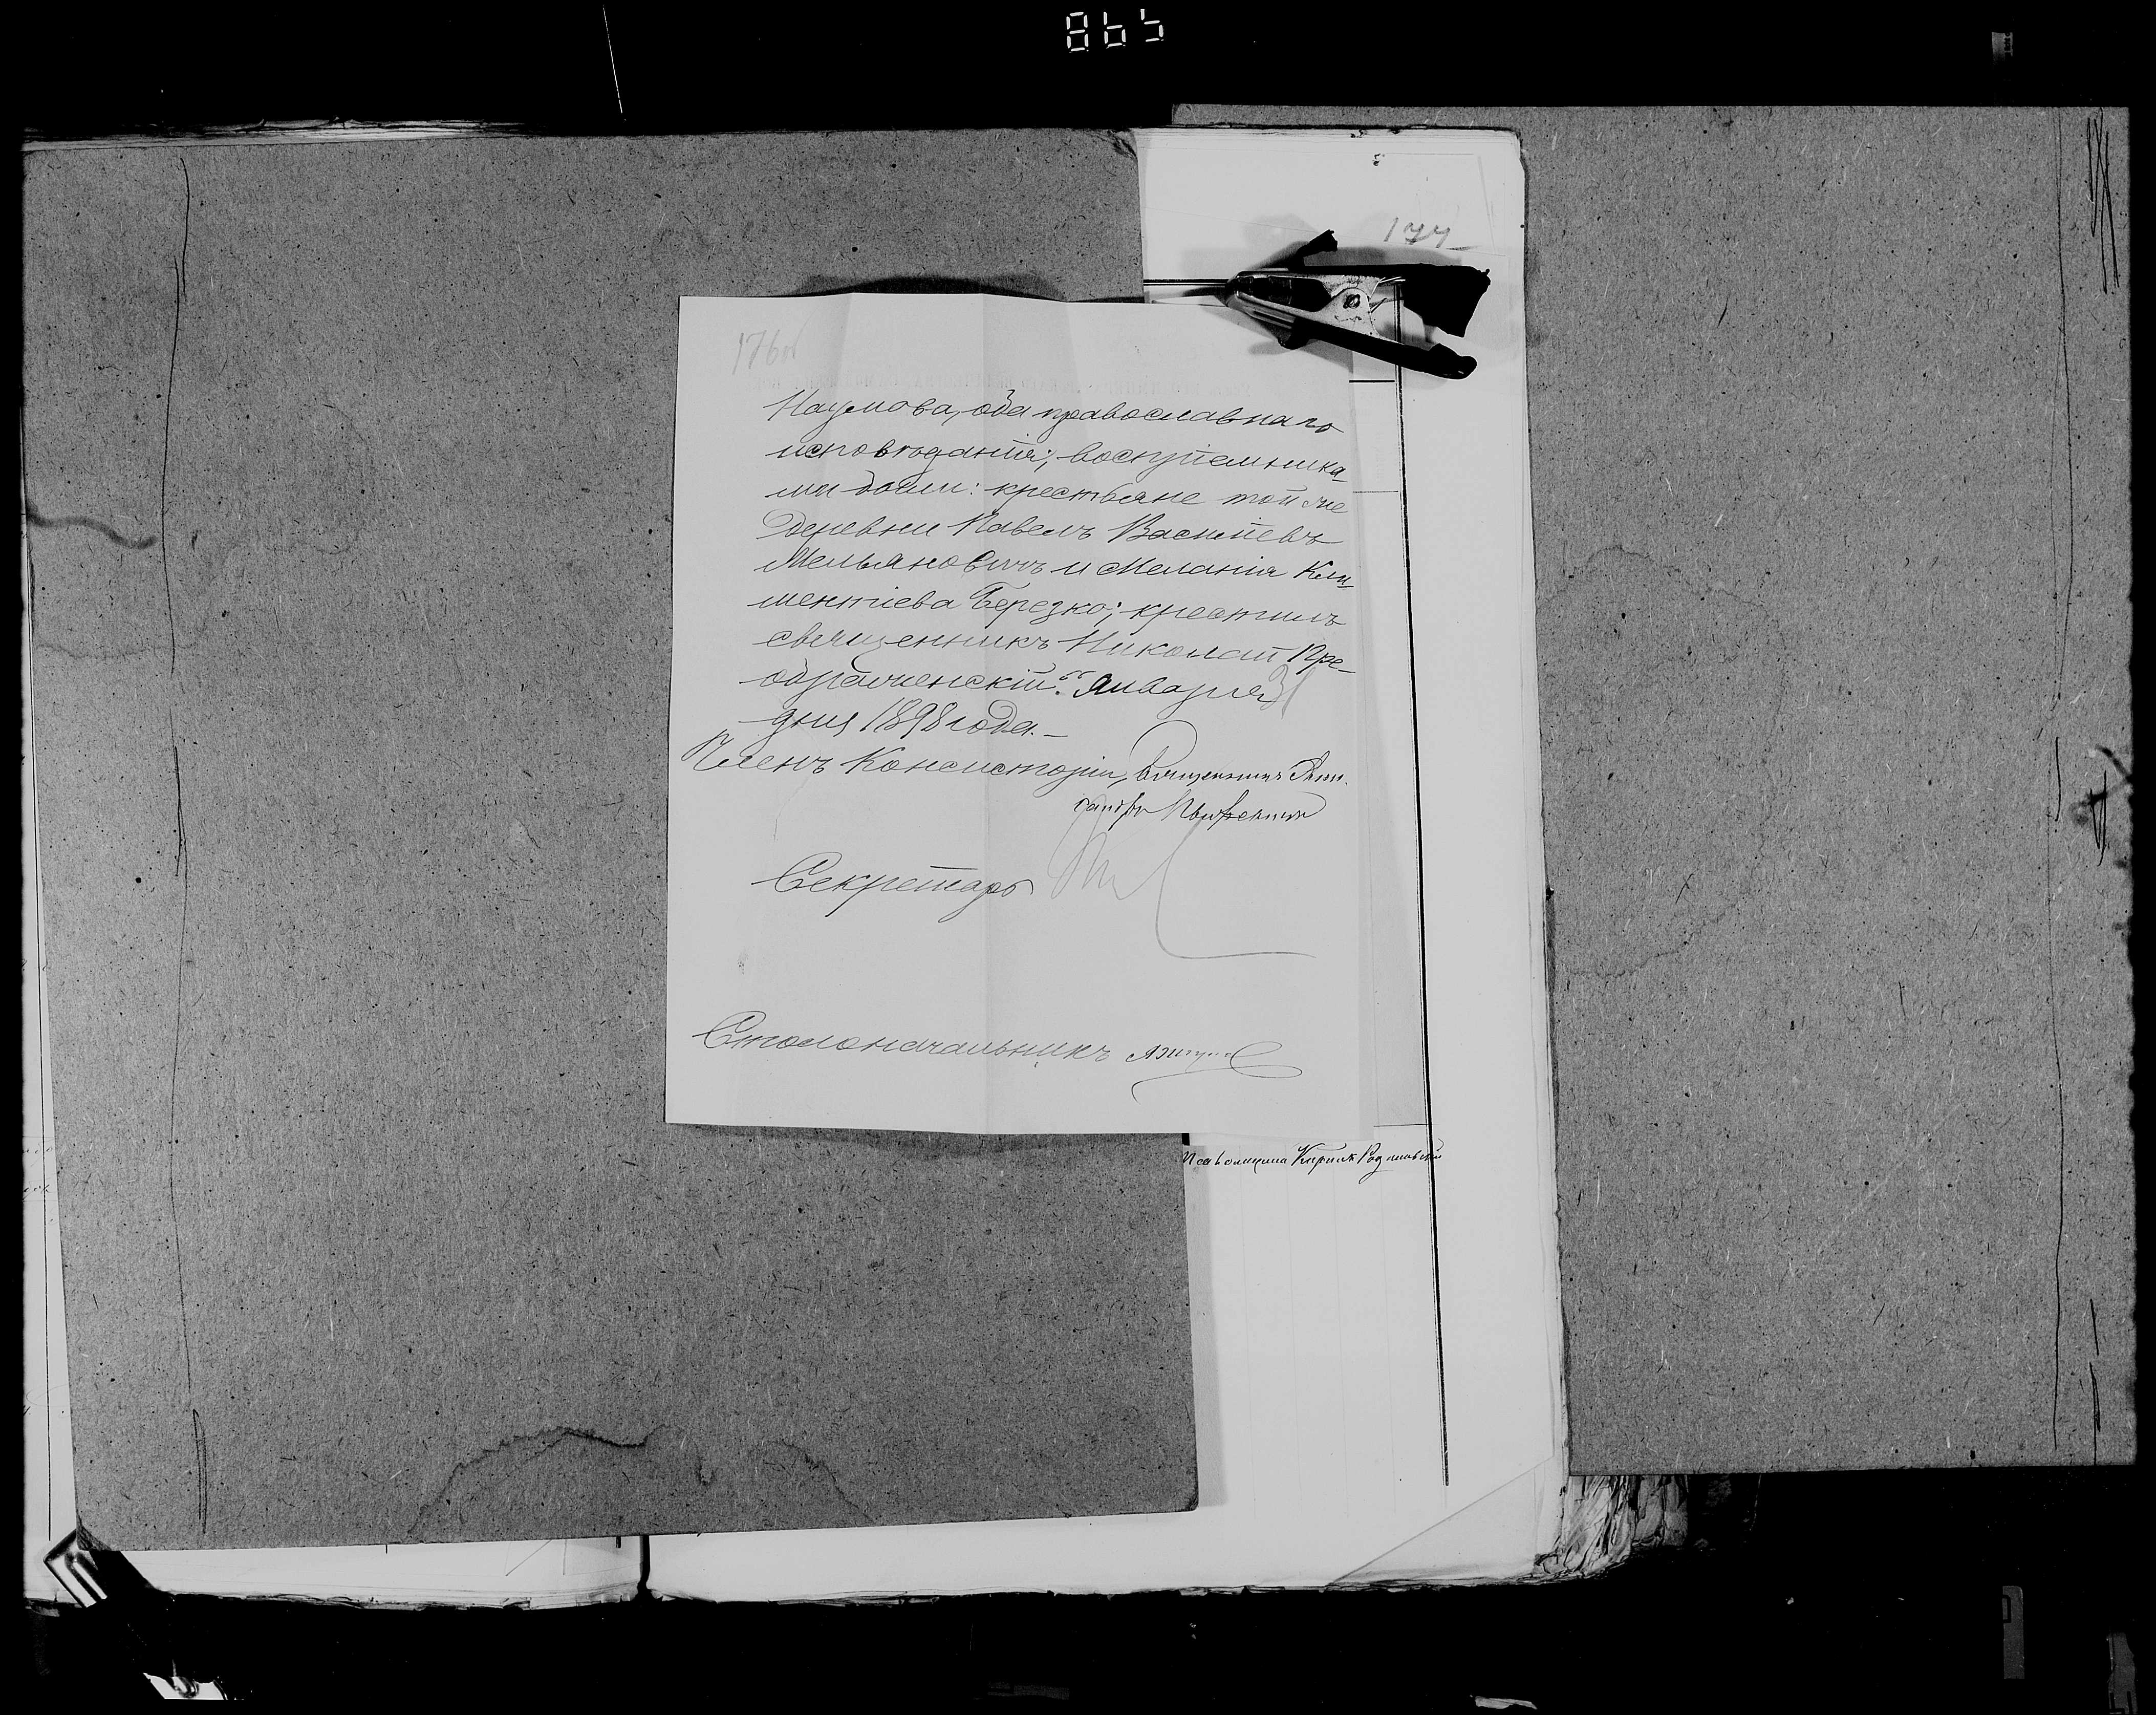 865
177
176об
Наумова, оба православнаго
исповѣданія; воспріемника-
ми были: крестьяне той же
деревни Павелъ Василіевъ
Мельяновичъ и Меланія Кли-
ментіева Березко; крестилъ
священникъ Николай Пре-
ображенскій". Января 31
дня 1898 года.—
Членъ Консисторіи, Священникъ
Секретарь
Столоначальникъ